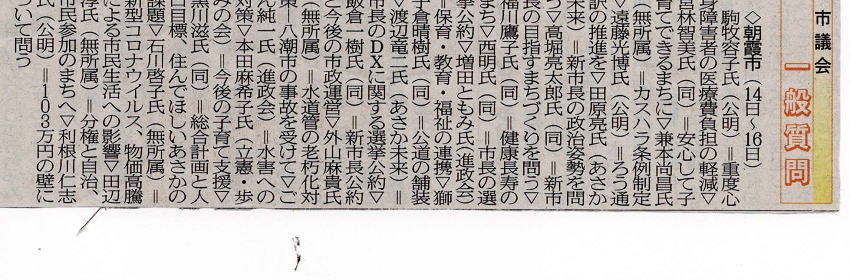 市議会
一般質問
◇朝霞市(14日〜16日)
駒牧容子氏(公明)＝重度心
身障害者の医療費負担の軽減▽
宮林智美氏(同)＝安心して子
育てできるまちに▽兼本尚昌氏
(無所属)＝カスハラ条例制定
▽遠藤光博氏(公明)＝ろう通
訳の推進を▽田原亮氏(あさか
未来)＝新市長の政治姿勢を問
う▽高堀亮太郎氏(同)＝新市
長の目指すまちづくりを問う▽
福川鷹子氏(同)＝健康長寿の
まち▽西明氏(同)＝市長の選
挙公約▽増田ともみ氏(進政会)
＝保育・教育・福祉の連携▽獅
子倉晴樹氏(同)＝公道の舗装
▽渡辺竜二氏(あさか未来)＝
市長のDXに関する選挙公約▽
飯倉一樹氏(同)＝新市長公約
と今後の市政運営▽外山麻貴氏
(無所属)＝水道管の老朽化対
策―八潮市の事故を受けて▽ご
ん純一氏(進政会)＝水害への
対策▽本田麻希子氏(立憲・歩
みの会)＝今後の子育て支援▽
黒川滋氏(同)＝総合計画と人
口目標、住んでほしいあさかの
課題▽石川啓子氏(無所属)＝
新型コロナウイルス、物価高騰
による市民生活への影響▽田辺
淳氏(無所属)＝分権と自治、
市民参加のまちへ▽利根川仁志
氏(公明)＝103万円の壁に
ついて問う